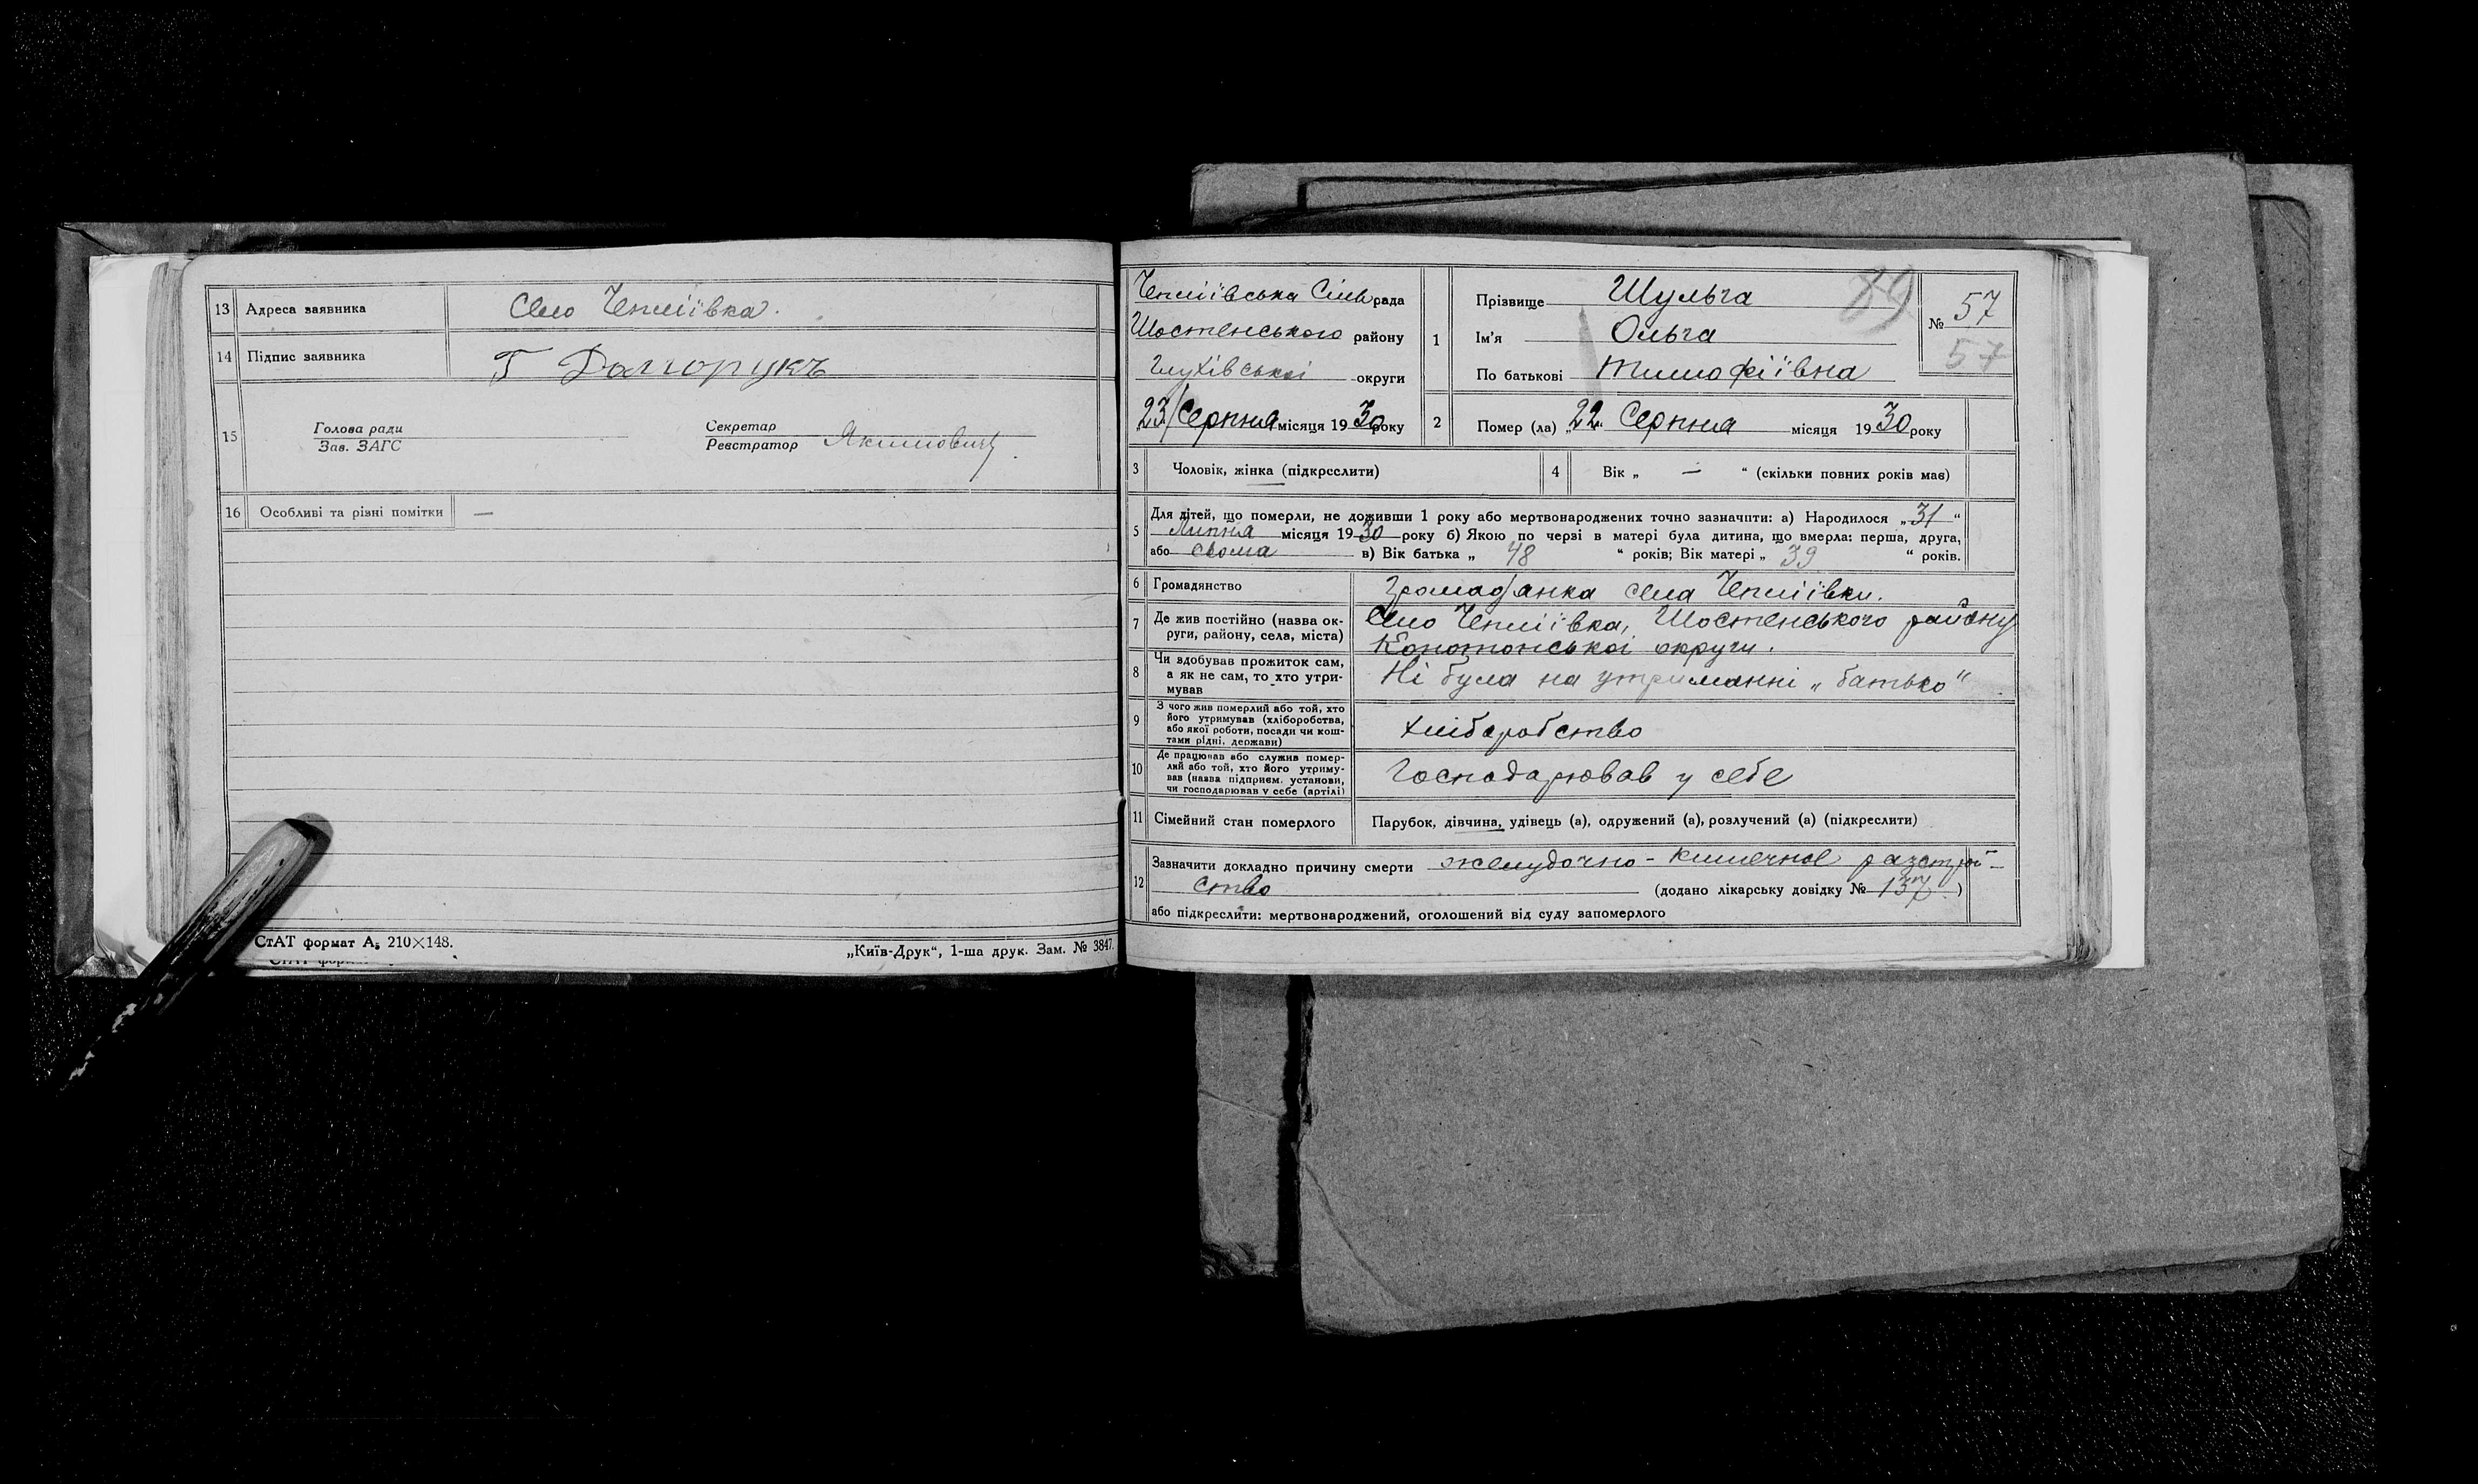 13 Адреса заявника Село Чепліївка.
14 Підпис заявника Г Долгорукъ
15 Голова ради
Зав. ЗАГС
Секретар
Реєстратор Якимович
16 Особливі та різні помітки —
СтАТ формат А5 210×148.
„Київ-Друк“, 1-ша друк. Зам. № 3847.
Чепліївська Сільрада
Шостенського району
Глухівської округи
23/Серпня місяця 1930 року
1 Прізвище Шульга
Ім'я Ольга
По батькові Тимофіївна
89
№ 57
57
2 Помер (ла) „22“ Серпня місяця 1930 року
3 Чоловік, жінка (підкреслити)
4 Вік „ — “ (скільки повних років має)
5 Для дітей, що померли, не доживши 1 року або мертвонароджених точно зазначити: а) Народилося „31“
Липня місяця 1930 року б) Якою по черзі в матері була дитина, що вмерла: перша, друга,
або сьома в) Вік батька „ 48 “ років; Вік матері „ 39 “ років.
6 Громадянство Громадянка села Чепліївки.
7 Де жив постійно (назва ок-
руги, району, села, міста)
Село Чепліївка, Шостенського району
Конотопської округи.
8 Чи здобував прожиток сам,
а як не сам, то хто утри-
мував
Ні була на утриманні „батько“
9 З чого жив померлий або той, хто
його утримував (хліборобства,
або якої роботи, посади чи кош-
тами рідні, держави)
хліборобство
10 Де працював або служив помер-
лий або той, хто його утриму-
вав (назва підприєм. установи,
чи господарював у себе (артілі)
Господарював у себе
11 Сімейний стан померлого Парубок, дівчина, удівець (а), одружений (а), розлучений (а) (підкреслити)
12 Зазначити докладно причину смерти желудочно-кишечное разстрой-
ство (додано лікарську довідку № 137)
або підкреслити: мертвонароджений, оголошений від суду запомерлого